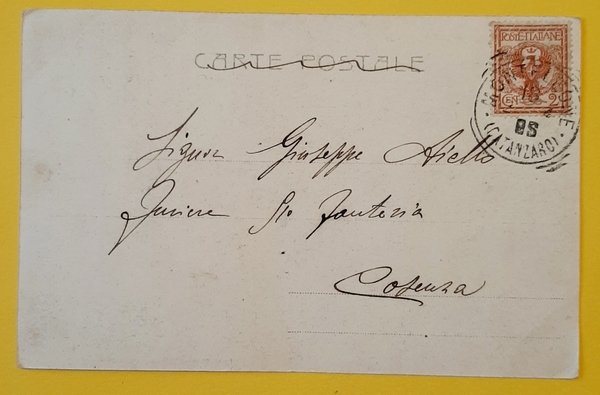 CARTE POSTALE
POSTE ITALIANE
CENT. 2
MONTELEONE
05
(CATANZARO)
Signor Giuseppe Aiello
Furiere Fanteria
Cosenza